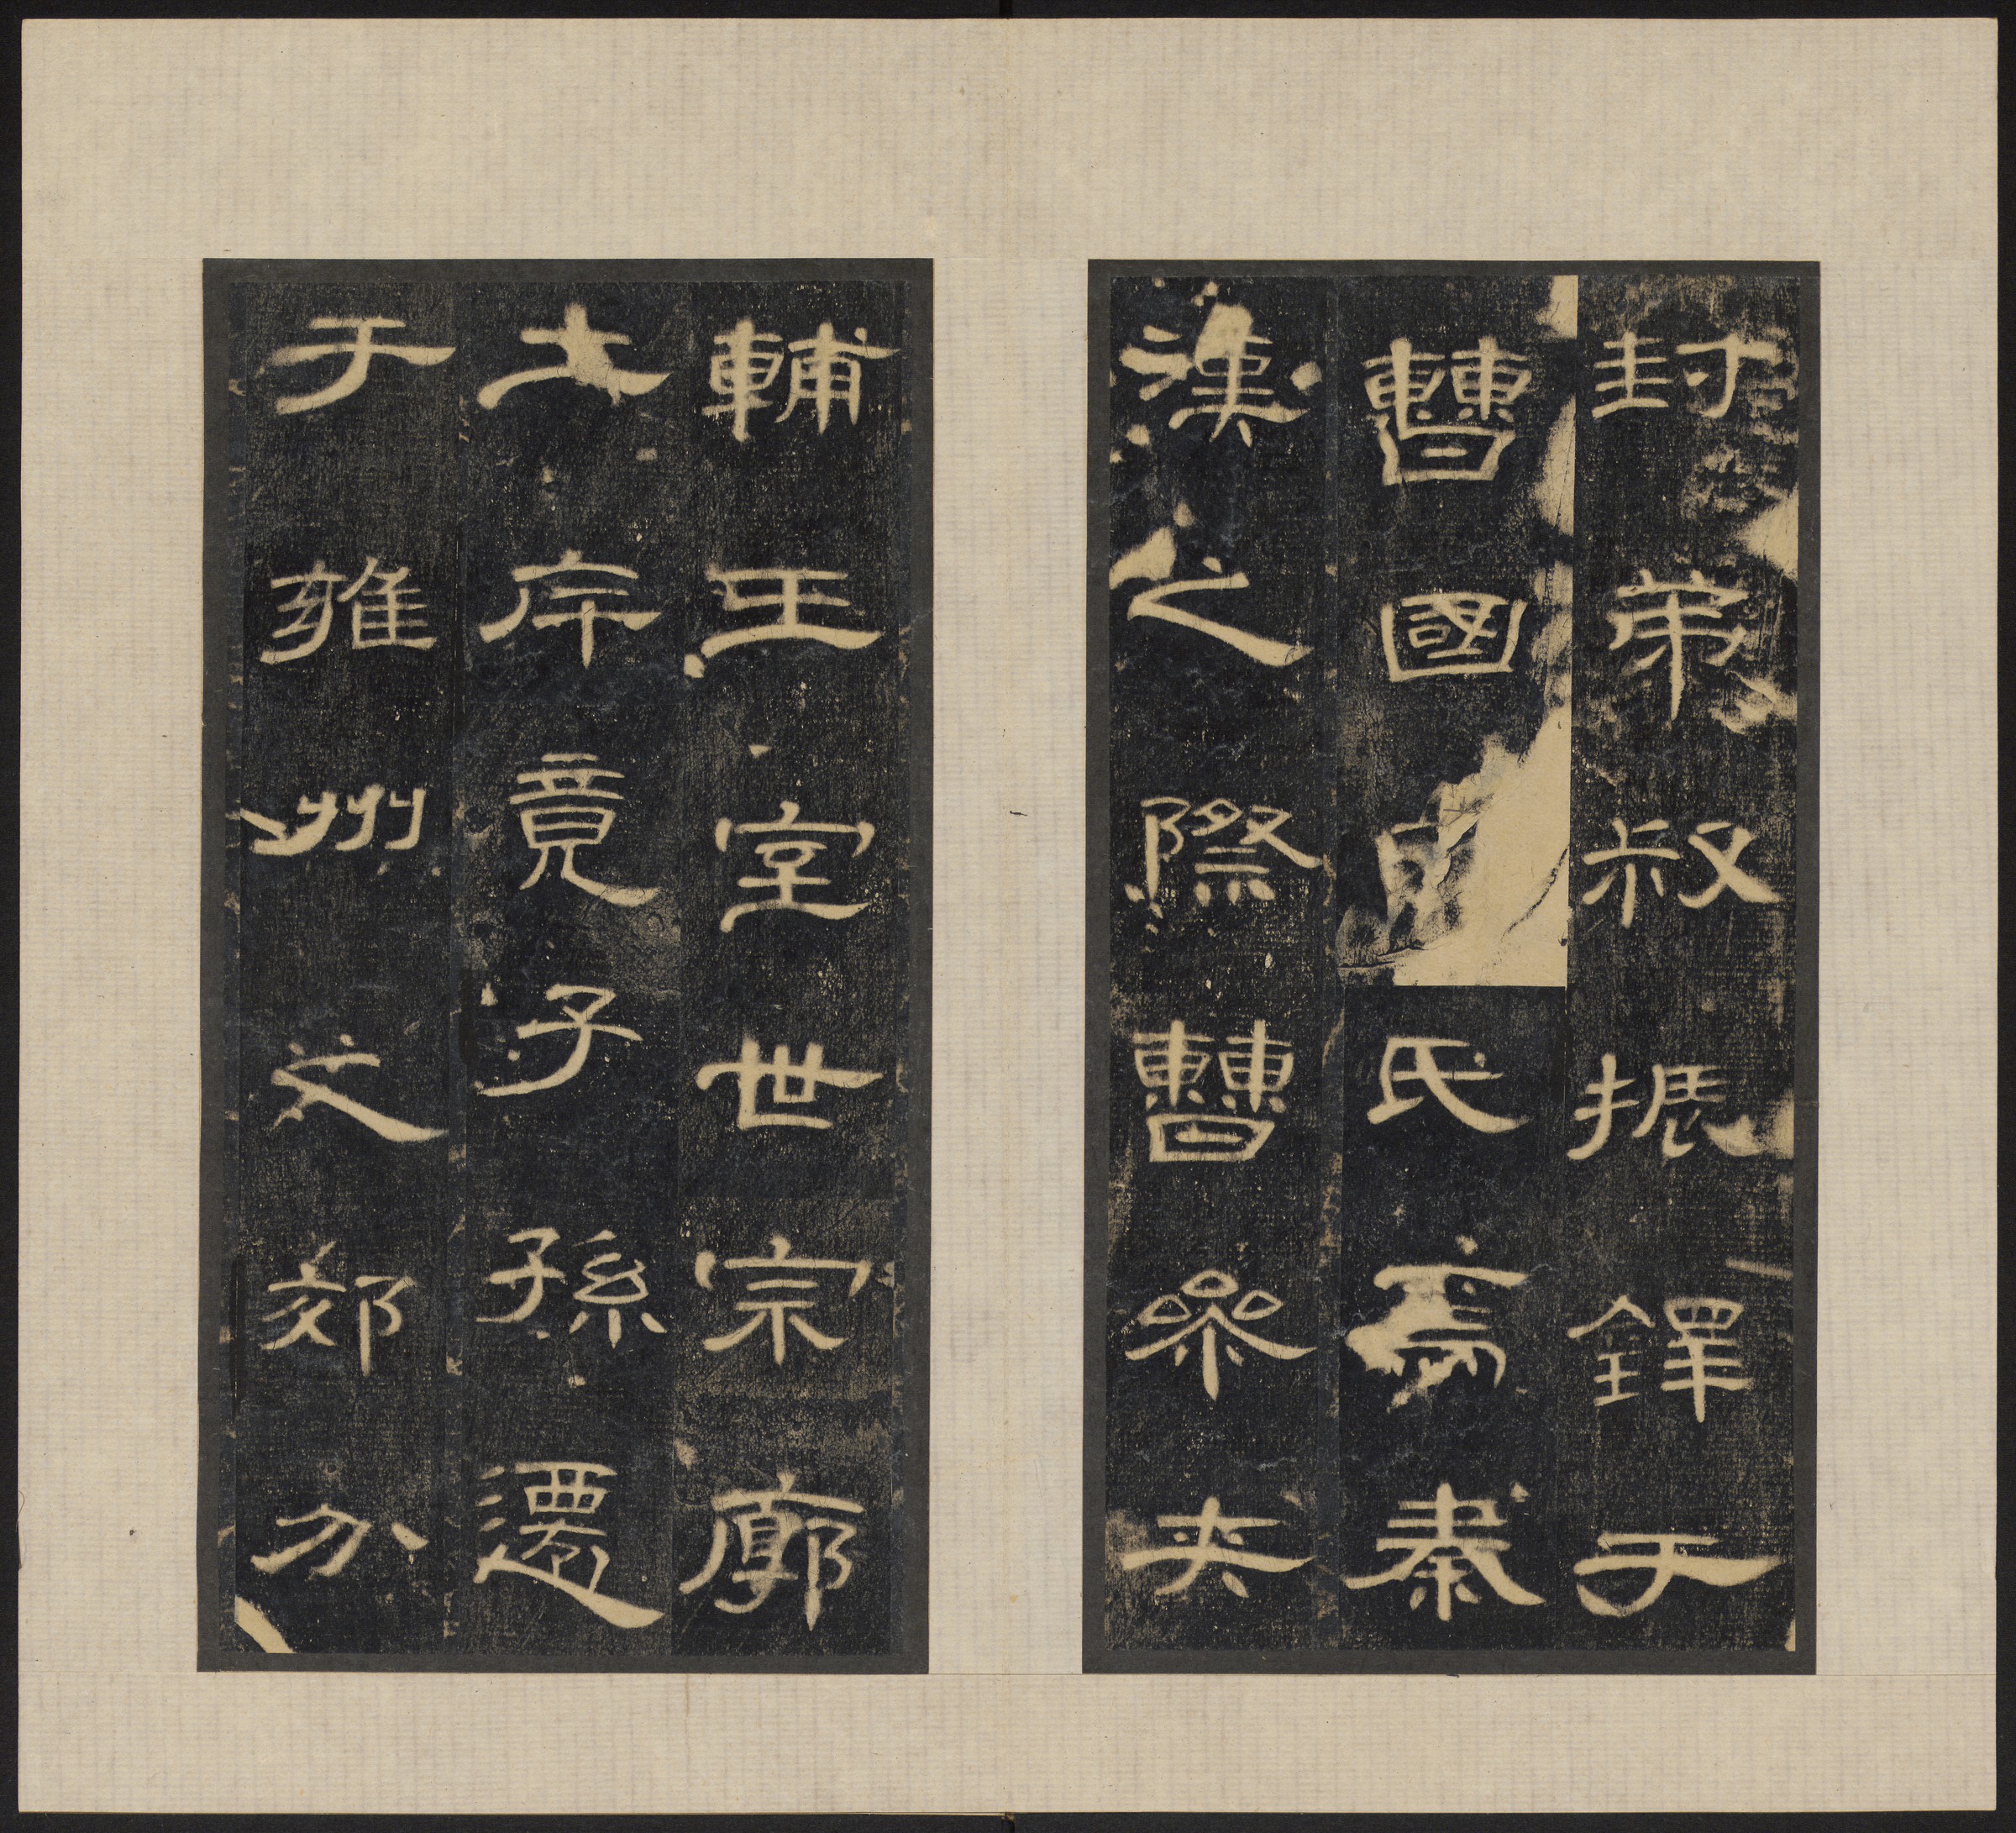 封弟叔振鐸于
曹國氏焉秦
漢之際曹參夾
輔王室世宗廓
土斥竟子孫遷
于雍州之郊分